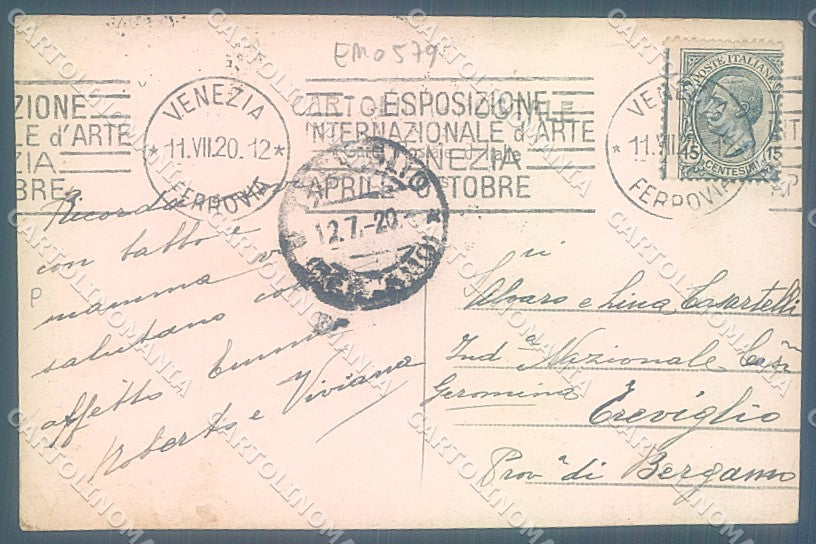 EM0579
POSTE ITALIANE
15 CENTESIMI 15
VENEZIA
11.VII.20.12
FERROVIA
ZIONE
LE d'ARTE
ZIA
BRE
ESPOSIZIONE
INTERNAZIONALE d'ARTE
VENEZIA
APRILE OTTOBRE
VENEZIA
11.VII
FERROVIA
CARTOLINA POSTALE
d'Italie
12.7.-20
P
con babbo e
mamma
salutano con
affetto
Roberto e Viviana
Alvaro e Lina Casartelli
Ind Nazionale
Geromina
Treviglio
Prov.a di Bergamo
CARTOLINOMANIA